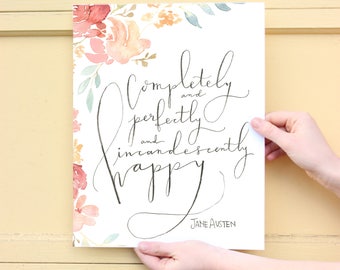 Completely
and
perfectly
and
incandescently
happy
JANE AUSTEN